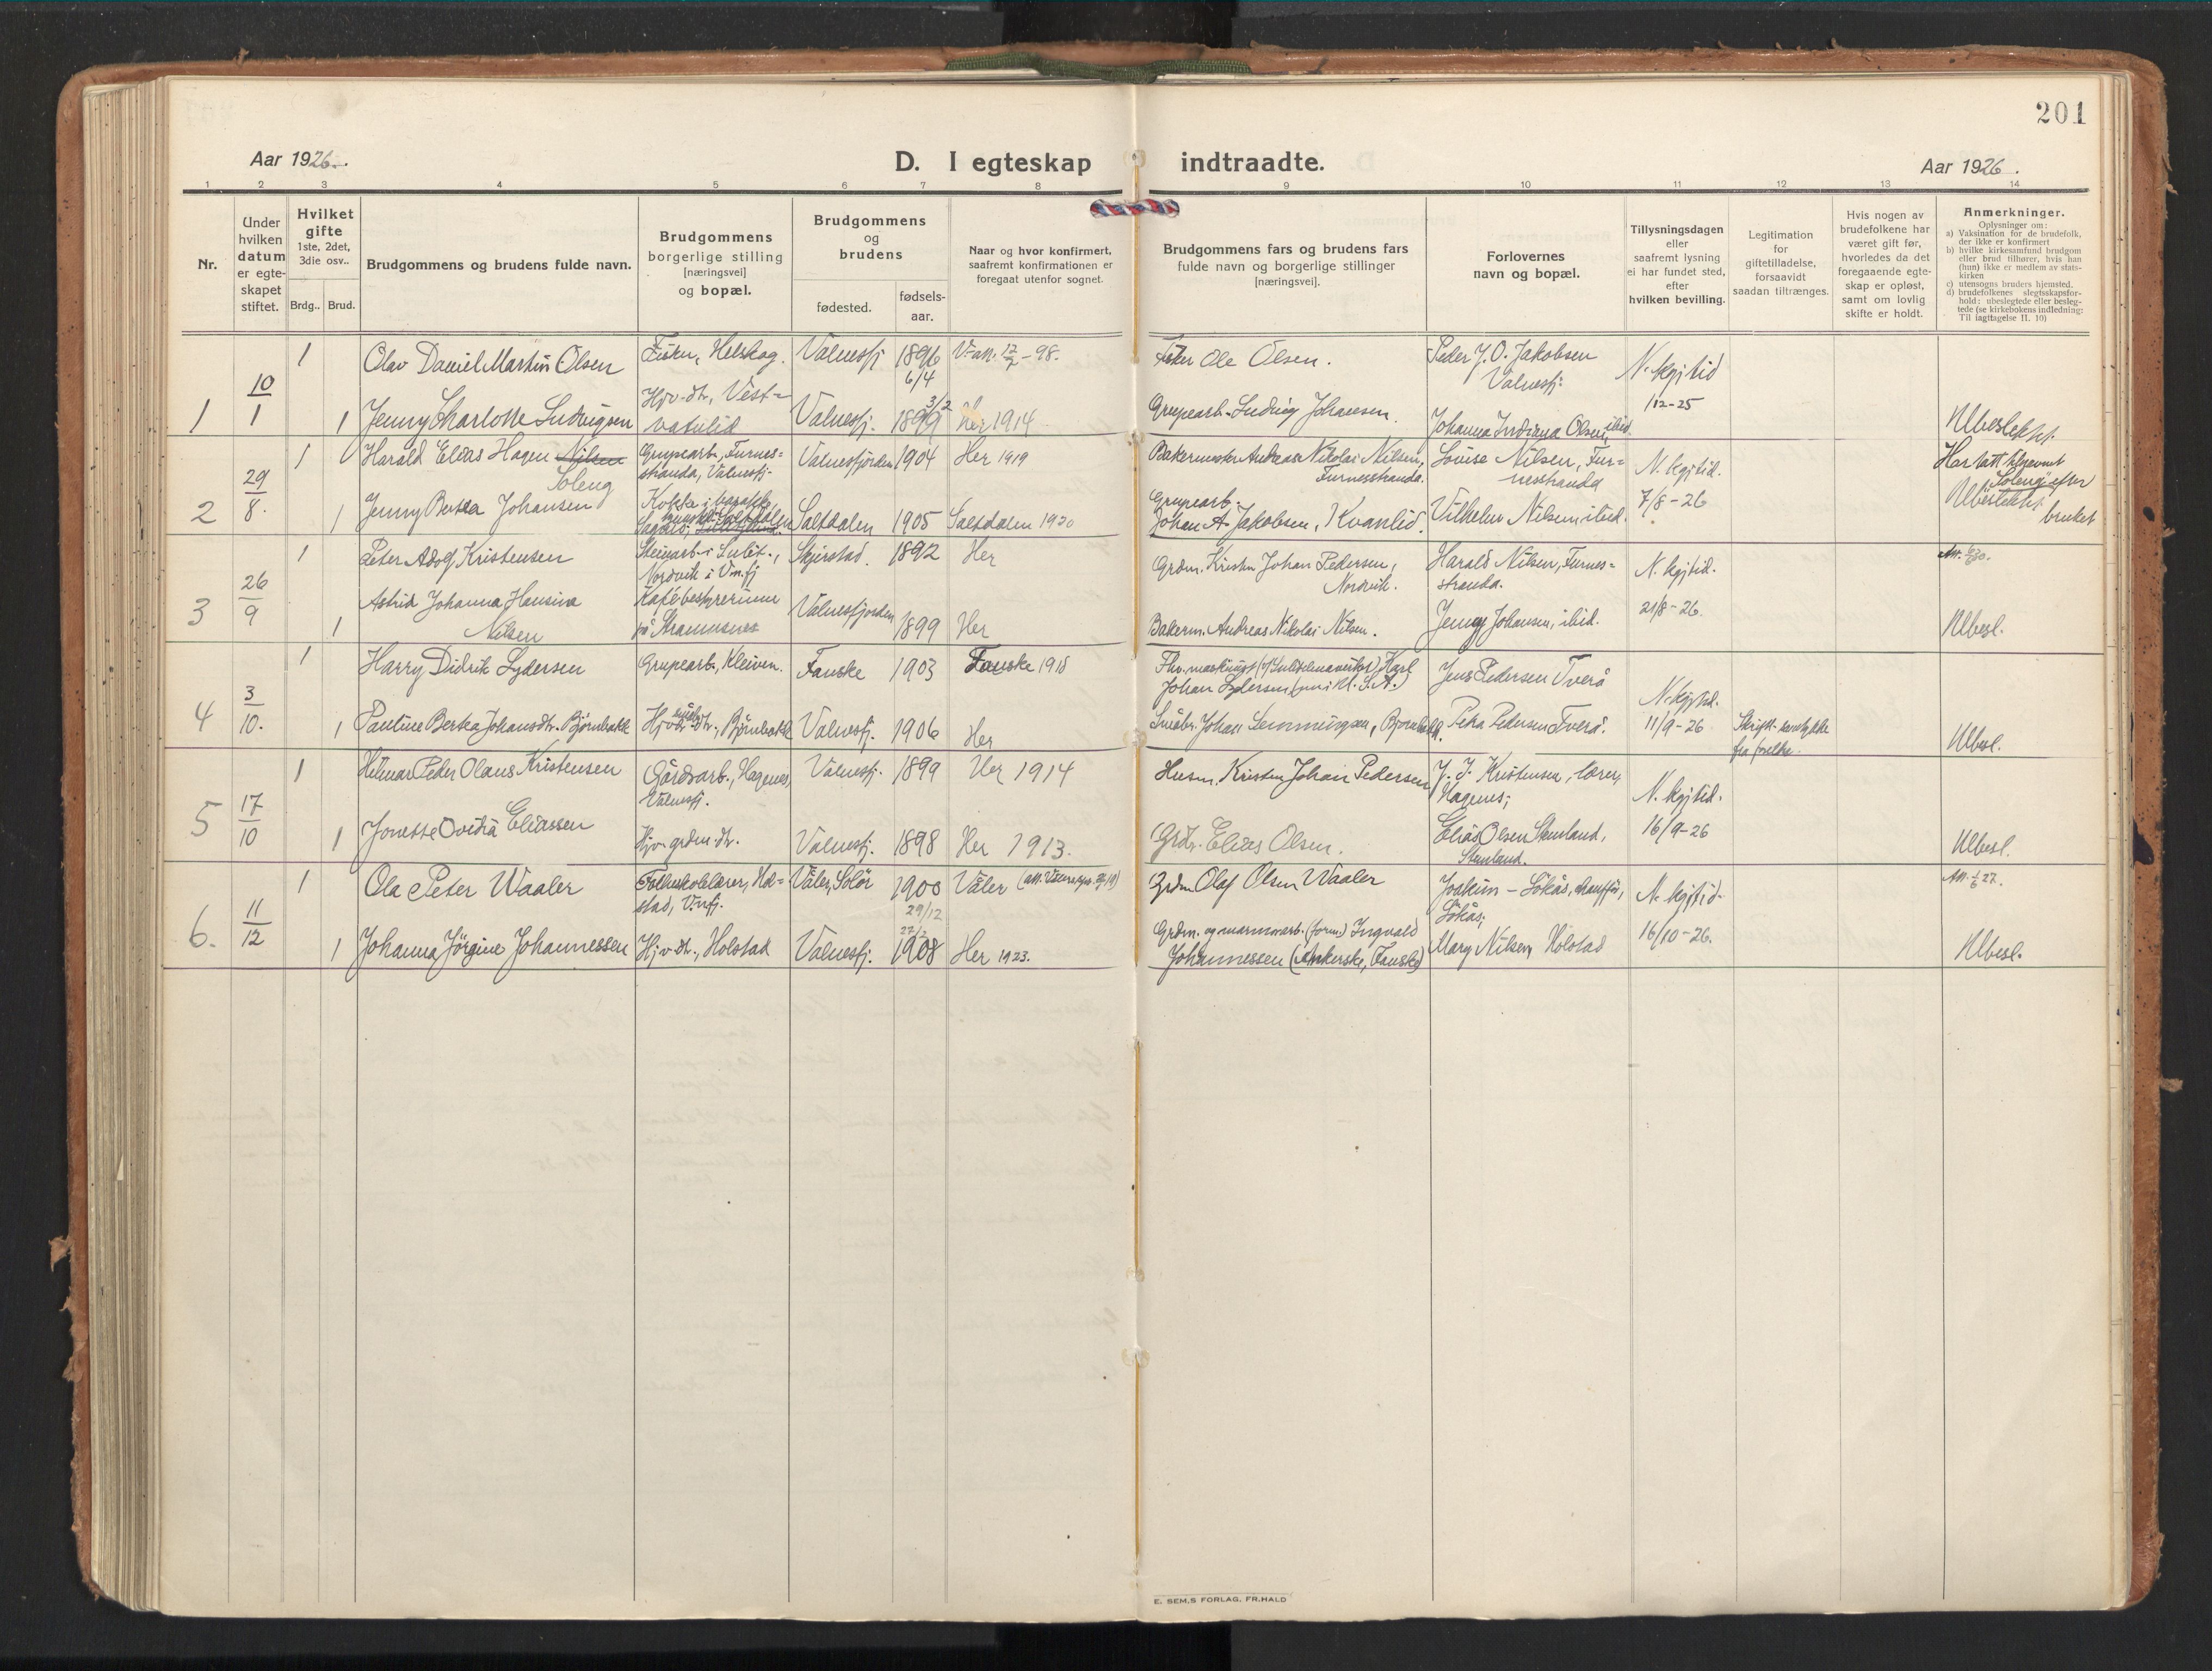 201
Aar 1926.
D. I egteskap indtraadte.
Aar 1926.
1 2 3 4 5 6 7 8 9 10 11 12 13 14
Nr.
Under hvilken datum er egte-skapet stiftet.
Hvilket gifte
1ste, 2det, 3die osv..
Brdg.. Brud.
Brudgommens og brudens fulde navn.
Brudgommens borgerlige stilling [næringsvei] og bopæl.
Brudgommens og brudens
fødested. fødsels-aar.
Naar og hvor konfirmert, saafremt konfirmationen er foregaat utenfor sognet.
Brudgommens fars og brudens fars fulde navn og borgerlige stillinger [næringsvei].
Forlovernes navn og bopæl.
Tillysningsdagen eller saafremt lysning ei har fundet sted, efter hvilken bevilling.
Legitimation for giftetilladelse, forsaavidt saadan tiltrænges.
Hvis nogen av brudefolkene har været gift før, hvorledes da det foregaaende egte-skap er opløst, samt om lovlig skifte er holdt.
Anmerkninger.
Oplysninger om:
a) Vaksination for de brudefolk, der ikke er konfirmert
b) hvilke kirkesamfund brudgom eller brud tilhører, hvis han (hun) ikke er medlem av stats-kirken
c) utensogns bruders hjemsted.
d) brudefolkenes slegtsskapsfor-hold: ubeslegtede eller besleg-tede (se kirkebokens indledning: Til iagttagelse II. 10)
1 10/1
1 Olav Daniel Martin Olsen Fisker, Helskog. Valnesfj 1896 6/4 V-att. 12/7-98. Fisker Ole Olsen. Peder J. O. Jakobsen Valnesfj. N. kgj tid 1/12-25
1 Jenny Charlotte Ludvigsen Hjv-dtr, Vest-vatnlid Valnesfj. 1899 3/2 Her 1914 Grupearb. Ludvig Johansen. Johanna Indiana Olsen, ibid. Ubeslektet.
2 29/8.
1 Harald Elias Hagen Nilsen Soleng Grupearb., Furnes-stranda, Valnesfj- Valnesfjorden 1904 Her 1919 Bakermester Andreas Nikolai Nilsen, Furnesstranda. Louise Nilsen, Fur-nesstranda N. kgj tid. 7/8-26 Har tatt Soleng efter bruket
1 Jenny Berta Johansen Kokke i Saltdalen Saltdalen 1905 Saltdalen 1920 Grupearb. Johan A. Jakobsen, Kvanlid. Vilhelm Nilsen, ibid. Ubeslektet.
3 26/9
1 Peter Adolf Kristensen Steinarb. i Sulit., Nordvik i Vn.fj Skjerstad. 1892 Her Grdm. Kristen Johan Pedersen, Nordvik. Harald Nilsen, Furnes-stranda. N. kgj tid. 21/8-26.
1 Astrid Johanna Hansine Nilsen Kafébestyrerinne på Straumsnes Valnesfjorden 1899 Her Bakerm. Andreas Nikolai Nilsen. Jenny Johansen, ibid. Ubesl.
4 3/10.
1 Harry Didrik Lydersen Grupearb., Kleiven. Fauske 1903 Fauske 1918 Johan Lydersen (nu i U.S.A.) Jens Pedersen Tverå N. kgj tid. 11/9-26
1 Pauline Berta Johansdtr. Björnbakk Björnbakk Valnesfj. 1906 Her Småbr. Johan Lemmingsen, Bjørnbakk. Petra Pedersen Tverå. Skriftl. samtykke fra foreldre. Ubesl.
5 17/10
1 Hilmar Peder Olaus Kristensen Gårdsarb., Hagenes, Valnesfj. Valnesfj. 1899 Her 1914 Husm. Kristen Johan Pedersen J. J. Kristensen, lærer, Hagenes; N. kgj tid. 16/9-26
1 Jonette Ovidia Eliassen Hjv. grdm. dtr. Valnesfj. 1898 Her 1913. Grdbr. Elias Olsen. Elias Olsen Stemland, Stemland. Ubesl.
6. 11/12
1 Ola Peter Waaler Folkeskolelærer, Hol-stad, Vnfj. Våler, Solör 1900 29/12 Våler Grdm Olaf Olsen Waaler Joakim Lökås, chauffør, Lökås; N. kgj tid. 16/10-26. Att. 1/6 27.
1 Johanna Jörgine Johannessen Hjv-dtr., Holstad Valnesfj. 1908 Her 1923. Grdm. og marmorarb. (form.) Ingvald Johannessen (Ankerske, Fauske) Mary Nilsen, Holstad Ubesl.
E. SEM.S FORLAG, FR.HALD